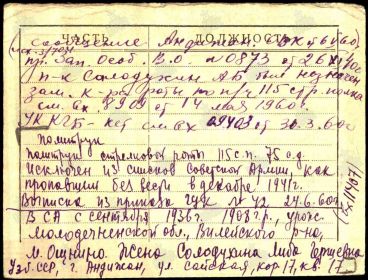 ЧАСТЬ ДОЛЖНОСТЬ
сообщение Андижан. ВК
пр. Зап. Особ. В.О. №0873 от 26
п-к Солодухин А.Б был назначен
зам. к-ра роты по п/ч 115 стр. полка
см. вх 8909 от 14 мая 1960г.
УК КГБ-нет см вх 09403 от 30.3.60г
политрук
политрук стрелковой роты 115 с.п. 75 с.д.
Исключен из списков Советской Армии, как
пропавший без вести в декабре 1941г.
Выписка из приказа ГУК № 42 24.6.60г
В СА с сентября 1936г. 1908 г.р., урож.
Молодеченской обл., Вилейского р-на,
м. Жена Солодухина Либа Гершевна
Узб. ССР, г. Андижан, ул. Сайская, кор. 17, кв 17